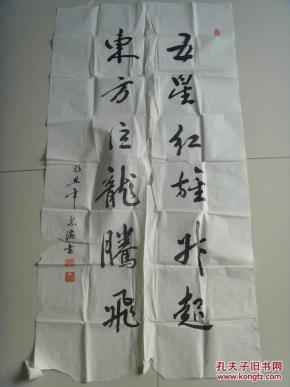 五星红旗升起
东方巨龙腾飞
己丑年
书
孔夫子旧书网